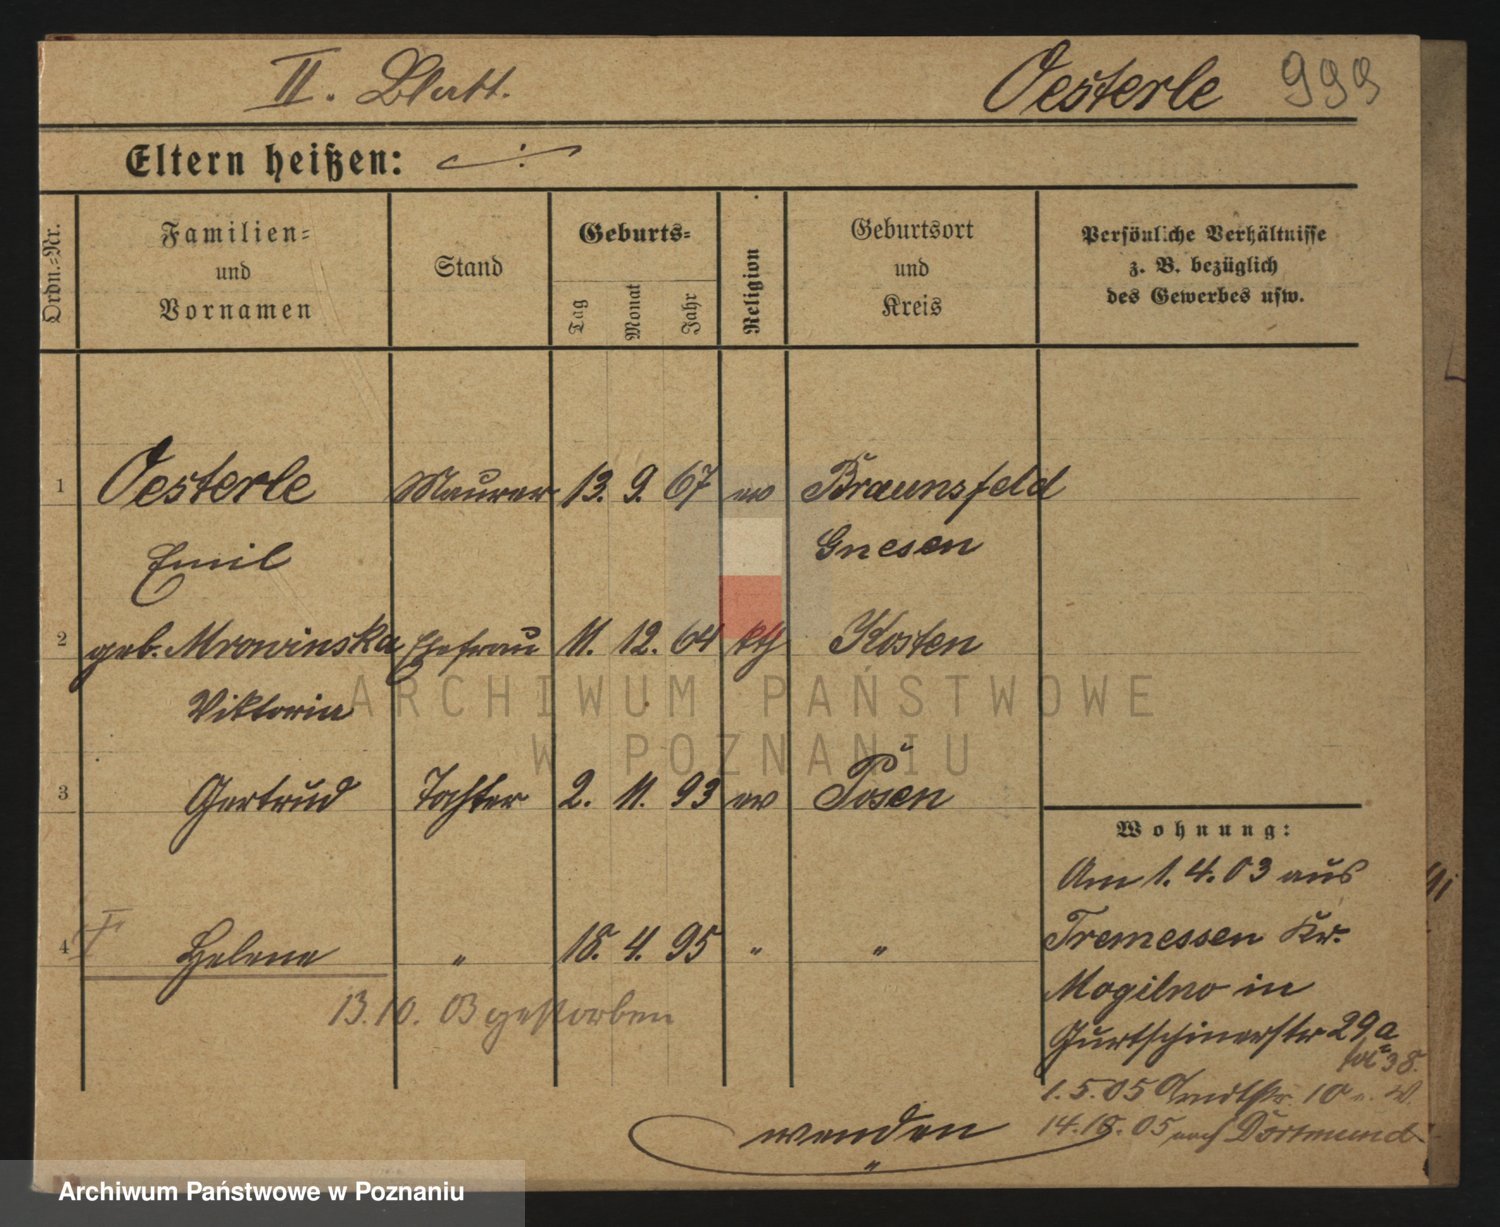 II. Blatt.
Oesterle 999
Eltern heißen: ·/·
Ordn.-Nr.
Familien-
und
Vornamen
Stand
Geburts-
Tag
Monat
Jahr
Religion
Geburtsort
und
Kreis
Persönliche Verhältnisse
z. B. bezüglich
des Gewerbes usw.
1 Oesterle Maurer 13. 9. 67 ev Braunsfeld
Emil Gnesen
2 geb. Mrowinska Ehefrau 11. 12. 64 kth Kosten
Viktoria
3 Gertrud Tochter 2. 11. 93 ev Posen
4 Helene " 18. 4. 95 " "
13.10.03 gestorben
Wohnung:
Am 1.4.03 aus
Tremessen Kr.
Mogilno in
Gurtschinerstr 29a
38.
1.5.05 10
05 nach Dortmund
wenden
ARCHIWUM PAŃSTWOWE
W POZNANIU
Archiwum Państwowe w Poznaniu